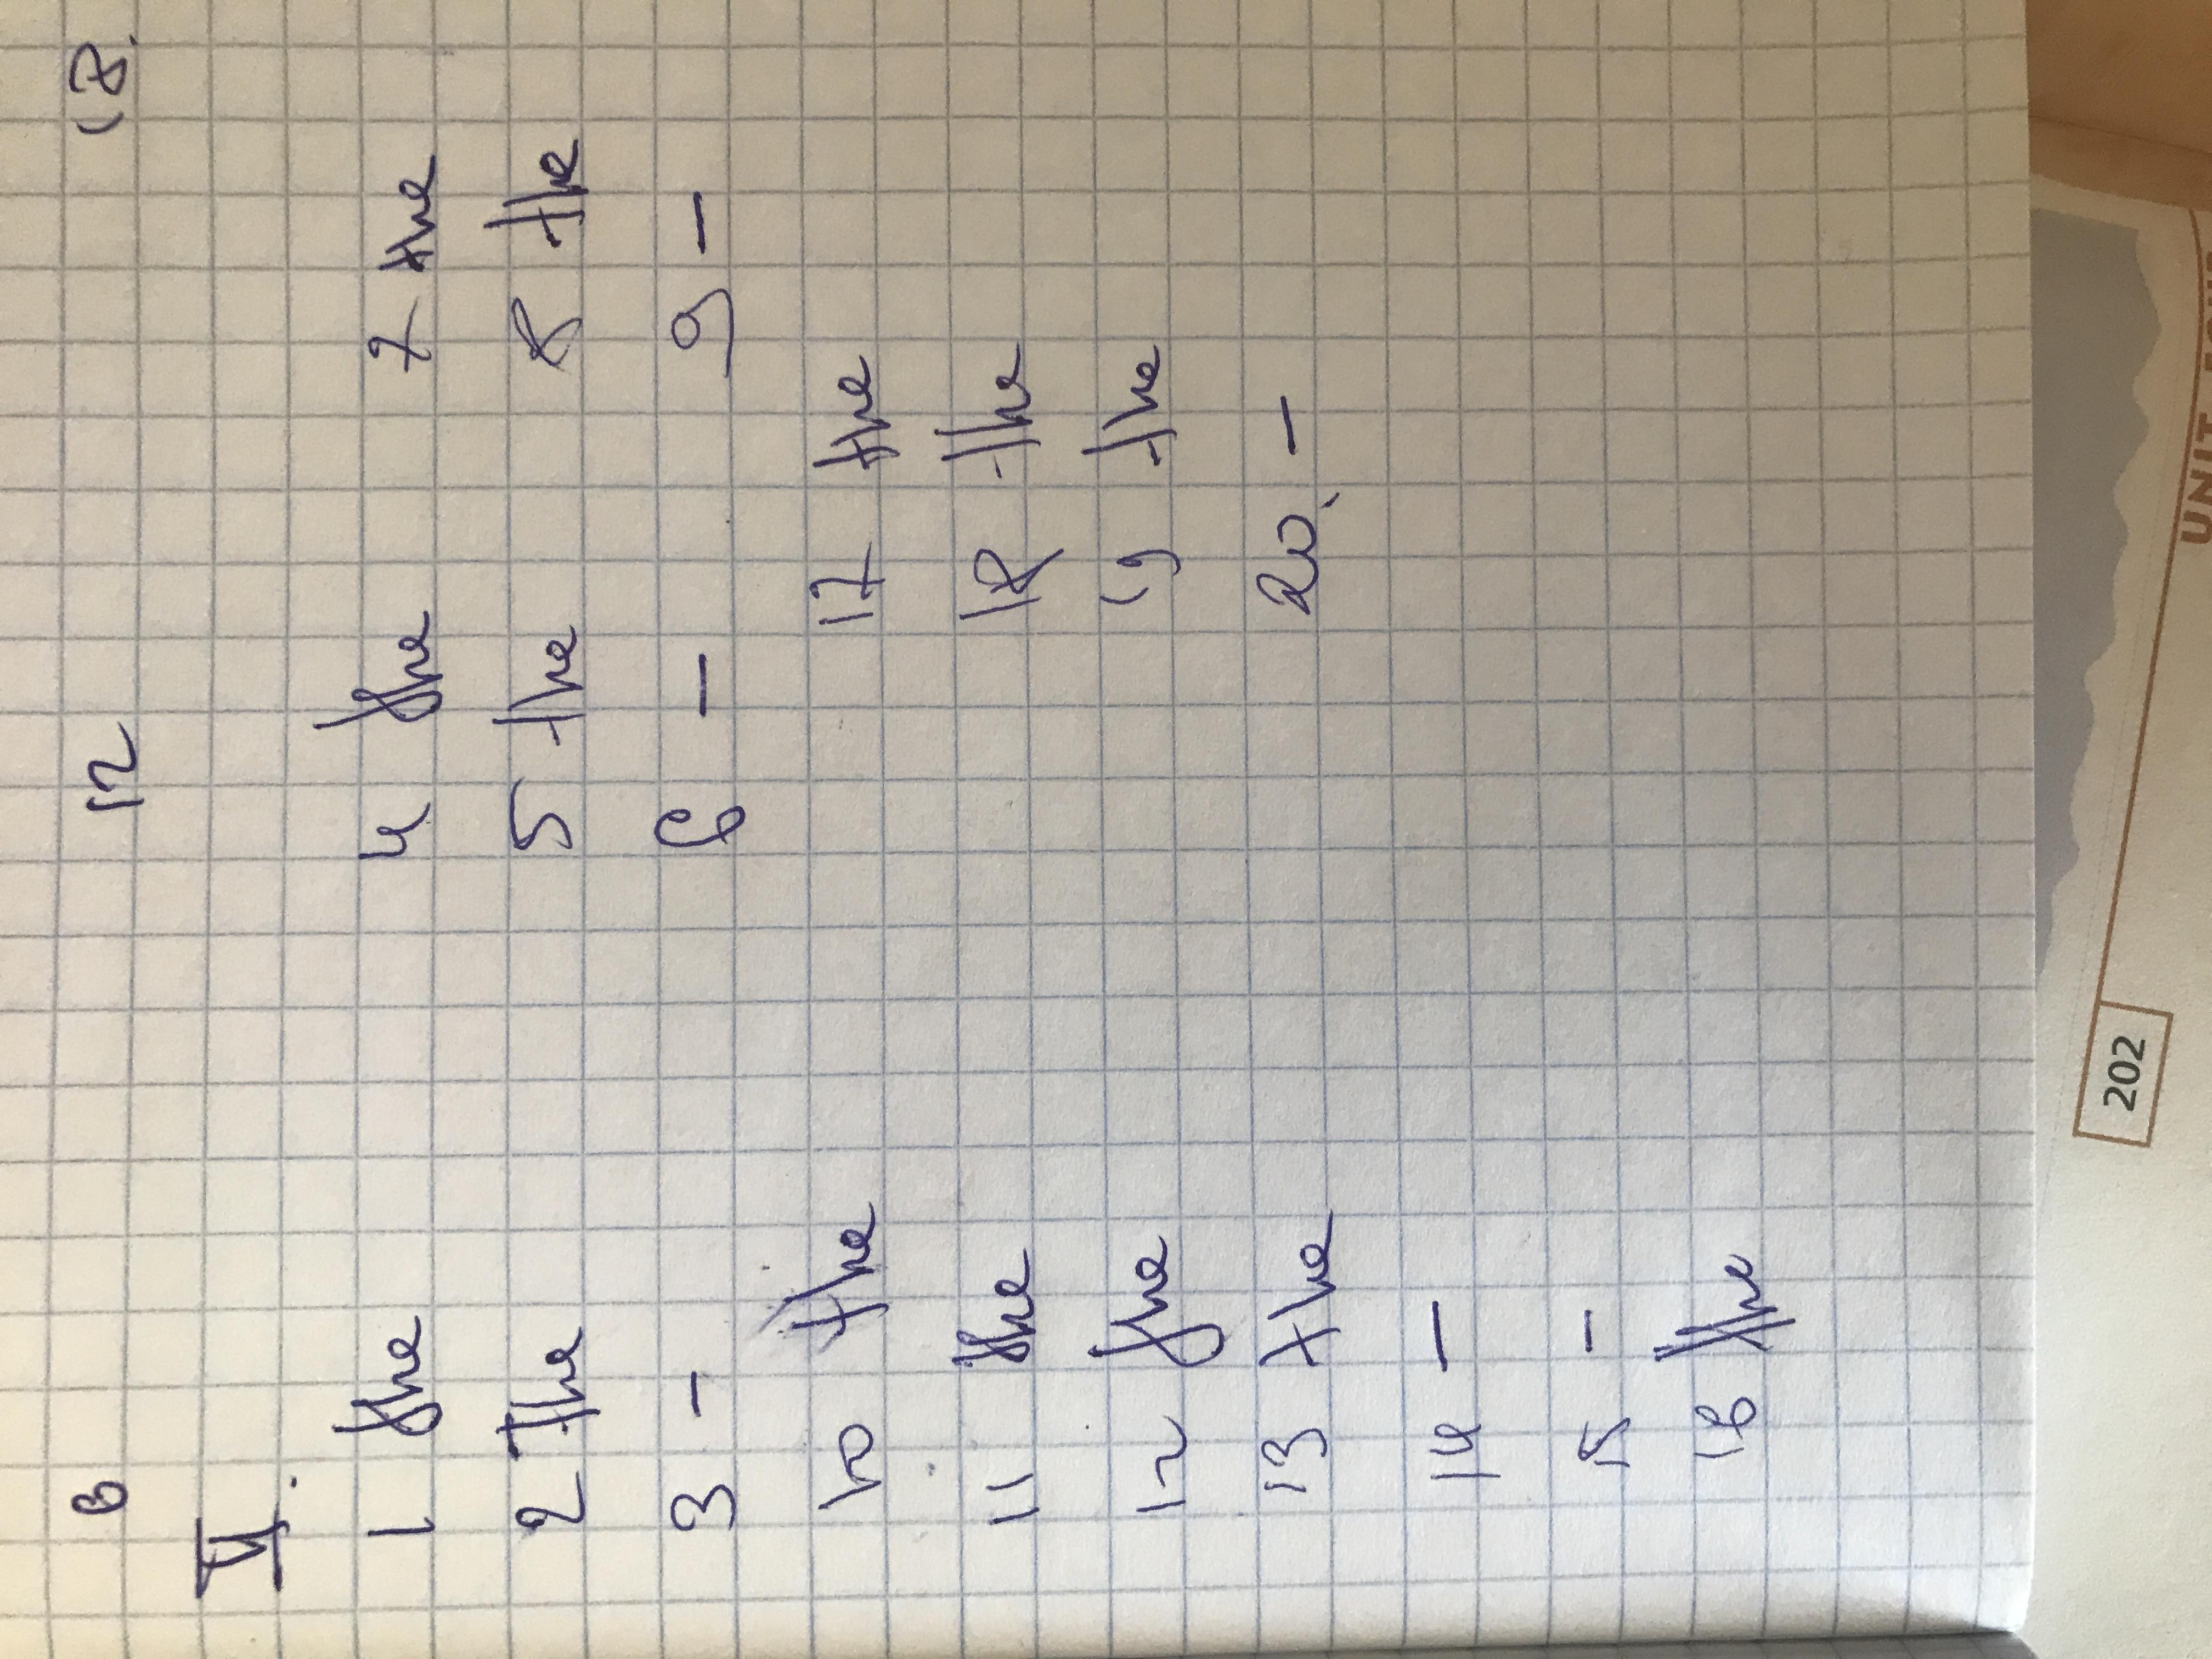 6 12 18.
V.
1 the 4 the 7 the
2 the 5 the 8 the
3 – 6 – 9 –
10 the 17 the
11 the 18 the
12 the 19 the
13 the 20. –
14 –
15 –
16 the
202
UNIT FOUR